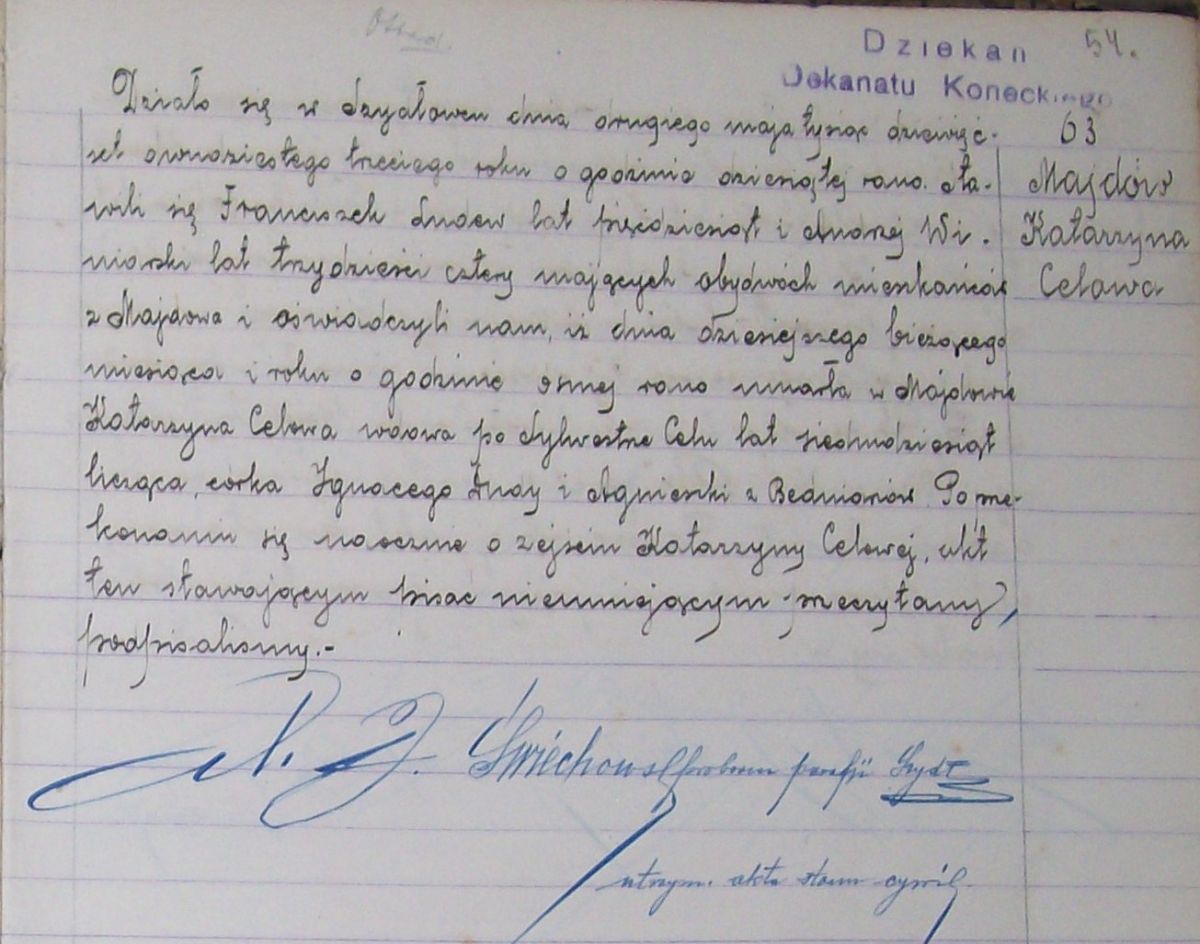 Dziekan
54.
Dekanatu Koneckiego
63
Majdów
Katarzyna
Celowa
Działo się w Szydłowcu dnia drugiego maja tysiąc dziewięć-
set dwudziestego trzeciego roku o godzinie dziesiątej rano. Sta-
wili się Franciszek lat pięćdziesiąt i Andrzej Wi-
niarski lat trzydzieści cztery mających obydwóch mieszkańców
z Majdowa i oświadczyli nam, iż dnia dzisiejszego bieżącego
miesiąca i roku o godzinie ósmej rano umarła w Majdowie
Katarzyna Celowa wdowa po Sylwestrze Celu lat siedmdziesiąt
licząca, córka Ignacego Dudy i Agnieszki z Bednarzów. Po prze-
konaniu się naocznie o zejściu Katarzyny Celowej, akt
ten stawającym pisać nieumiejącym przeczytany,
podpisaliśmy.-
proboszcz parafji Szydł
utrzym. akta stanu cywil.